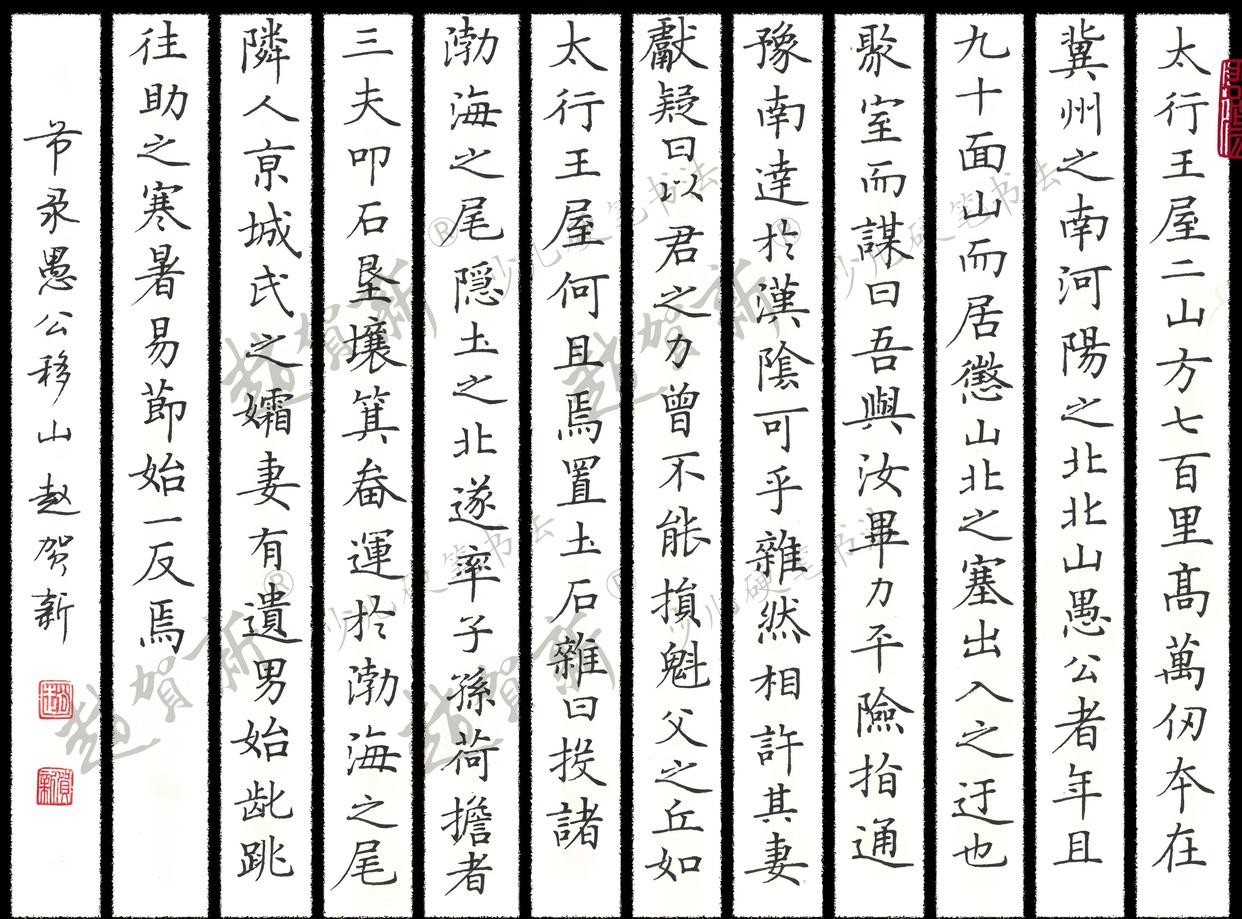 太行王屋二山方七百里高萬仞本在
冀州之南河陽之北北山愚公者年且
九十面山而居懲山北之塞出入之迂也
聚室而謀曰吾與汝畢力平險指通
豫南達於漢陰可乎雜然相許其妻
獻疑曰以君之力曾不能損魁父之丘如
太行王屋何且焉置土石雜曰投諸
渤海之尾隱土之北遂率子孫荷擔者
三夫叩石垦壤箕畚運於渤海之尾
隣人京城氏之孀妻有遺男始龀跳
往助之寒暑易節始一反焉
节录愚公移山 赵贺新
趙賀新®
少儿硬笔书法
趙賀新®
少儿硬笔书法
趙賀新®
少儿硬笔书法
趙賀新®
少儿硬笔书法